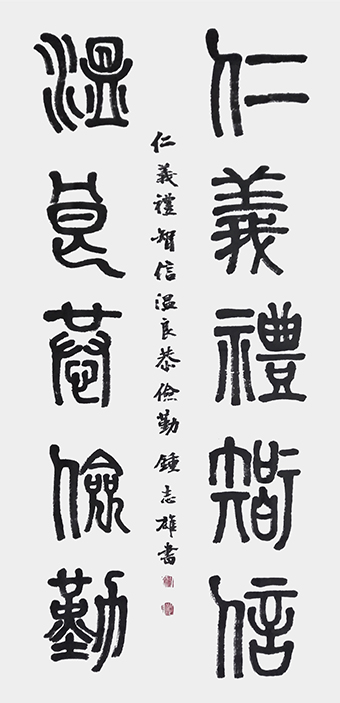 仁義禮智信
温良恭儉勤
仁義禮智信温良恭儉勤鍾志雄書